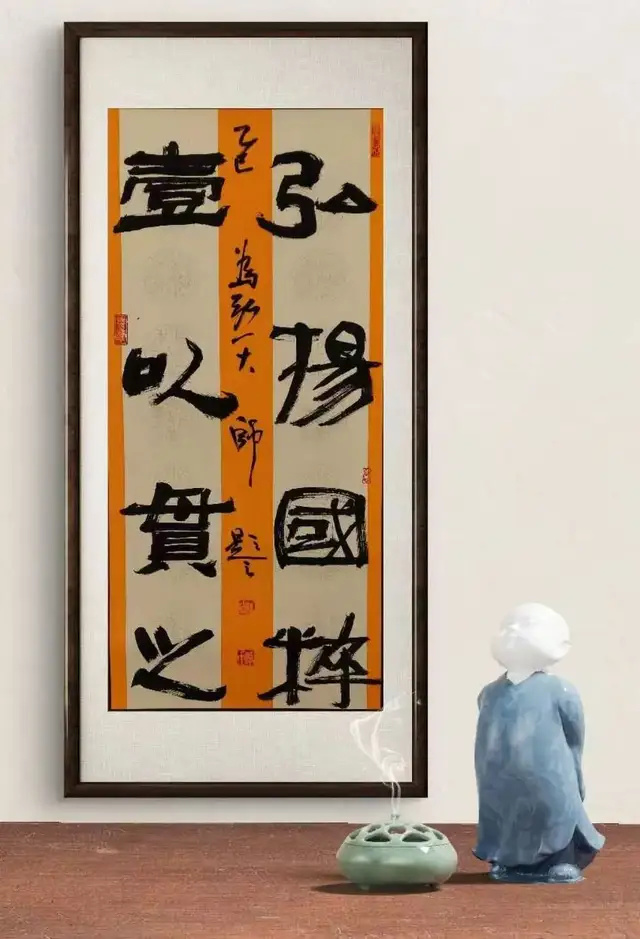 弘揚國粹
壹以貫之
乙巳 為弘一大師 題